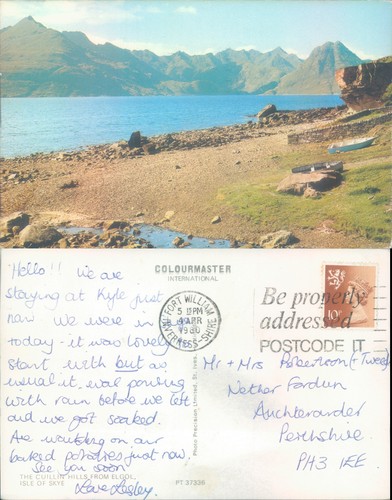 Hello!! We are
staying at Kyle just
now. We were in
today - it was lovely
start with but as
usual it was pouring
with rain before we left
and we got soaked.
Are waiting on our
baked potatoes just now.
See you soon
Love Lesley.
THE CUILLIN HILLS FROM ELGOL,
ISLE OF SKYE
COLOURMASTER
INTERNATIONAL
FORT WILLIAM
5 PM
4 APR
1980
INVERNESS-SHIRE
Be properly
addressed
POSTCODE IT
10P
Photo Precision Limited, St. Ives
PT 37336
Mr + Mrs Robertson (Tweed)
Nether Fordun
Auchterarder
Perthshire
PH3 1EE